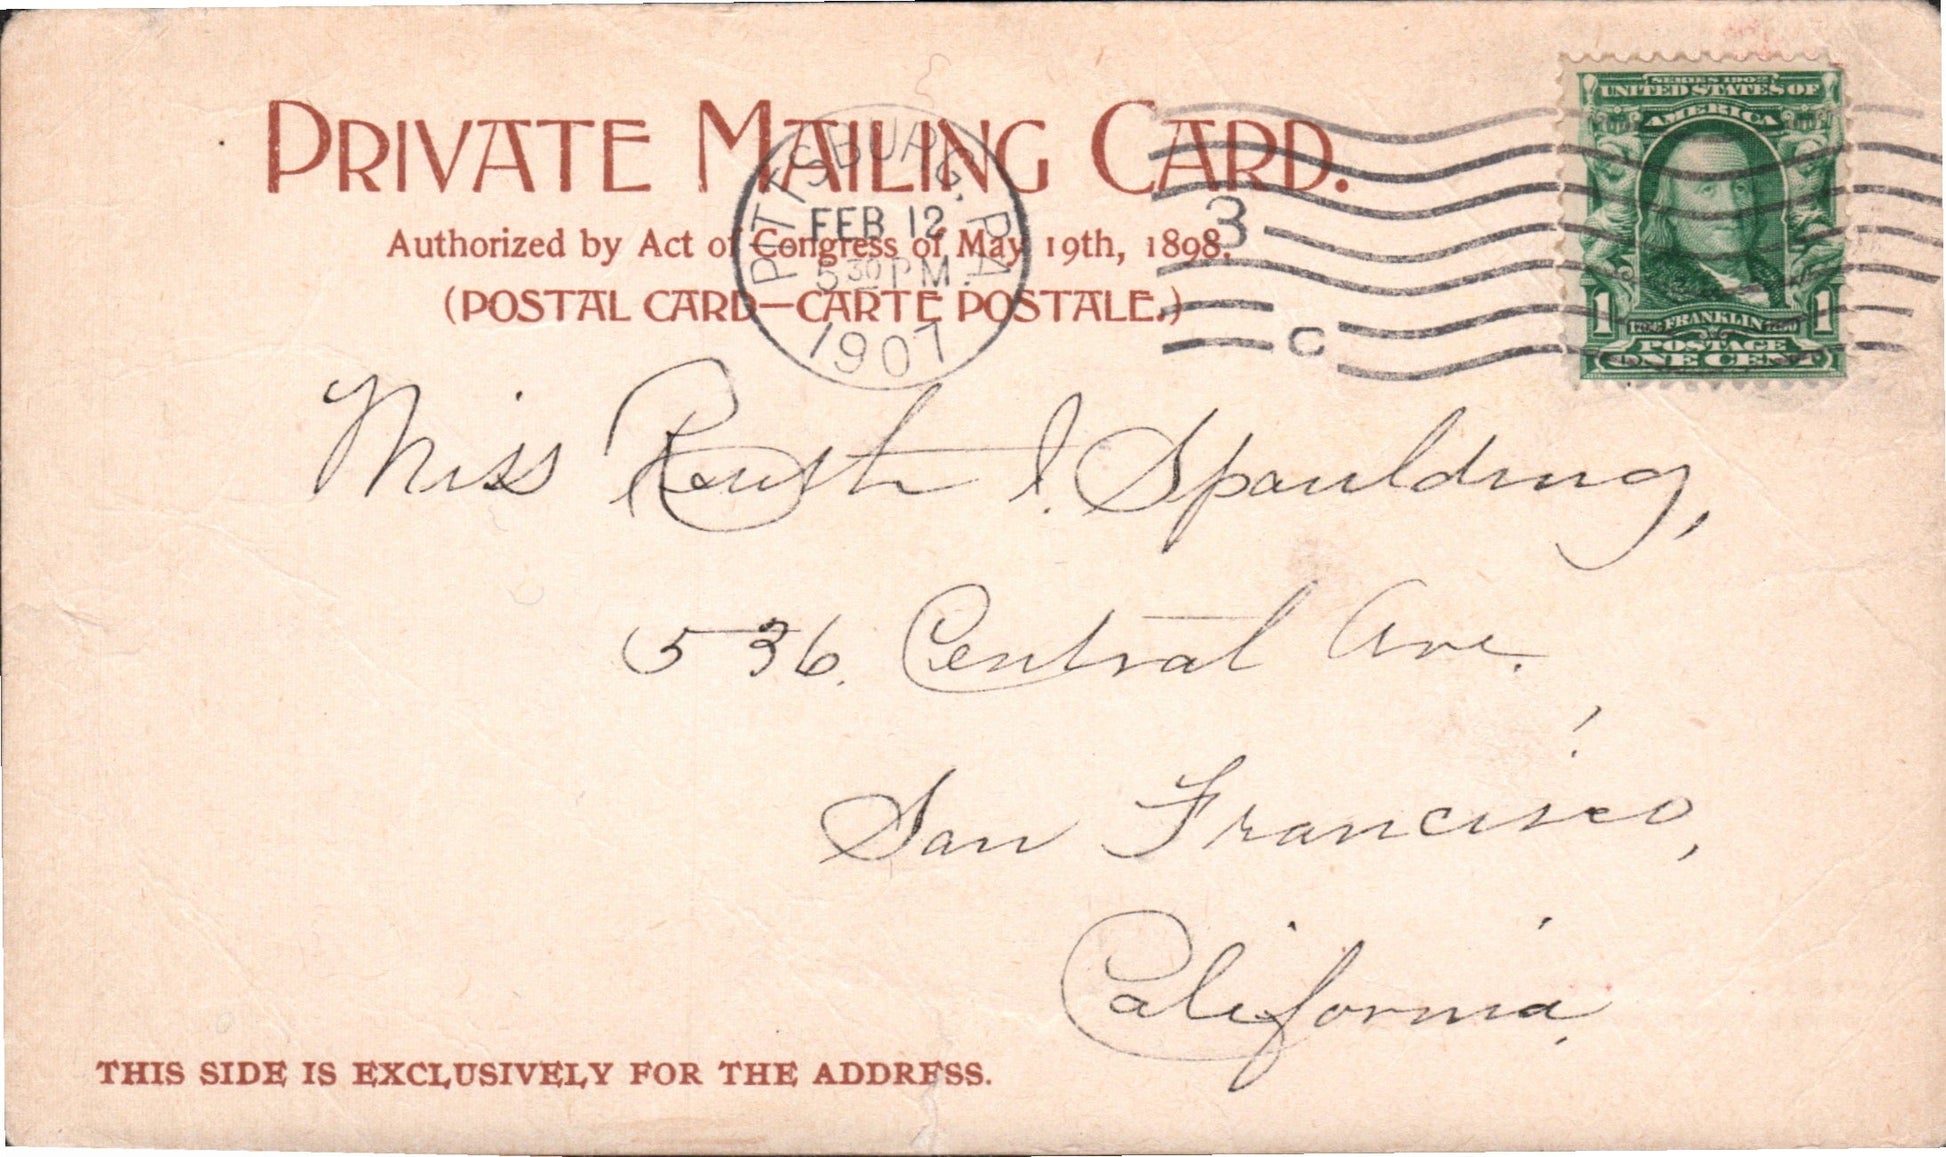 PRIVATE MAILING CARD.
Authorized by Act of Congress of May 19th, 1898.
(POSTAL CARD—CARTE POSTALE.)
PITTSBURG, PA.
FEB 12
5 30 PM
1907
3
C
SERIES 1902
UNITED STATES OF
AMERICA
1 1706 FRANKLIN 1790 1
POSTAGE
ONE CENT
Miss Ruth I. Spaulding,
536. Central Ave.
San Francisco,
California.
THIS SIDE IS EXCLUSIVELY FOR THE ADDRESS.